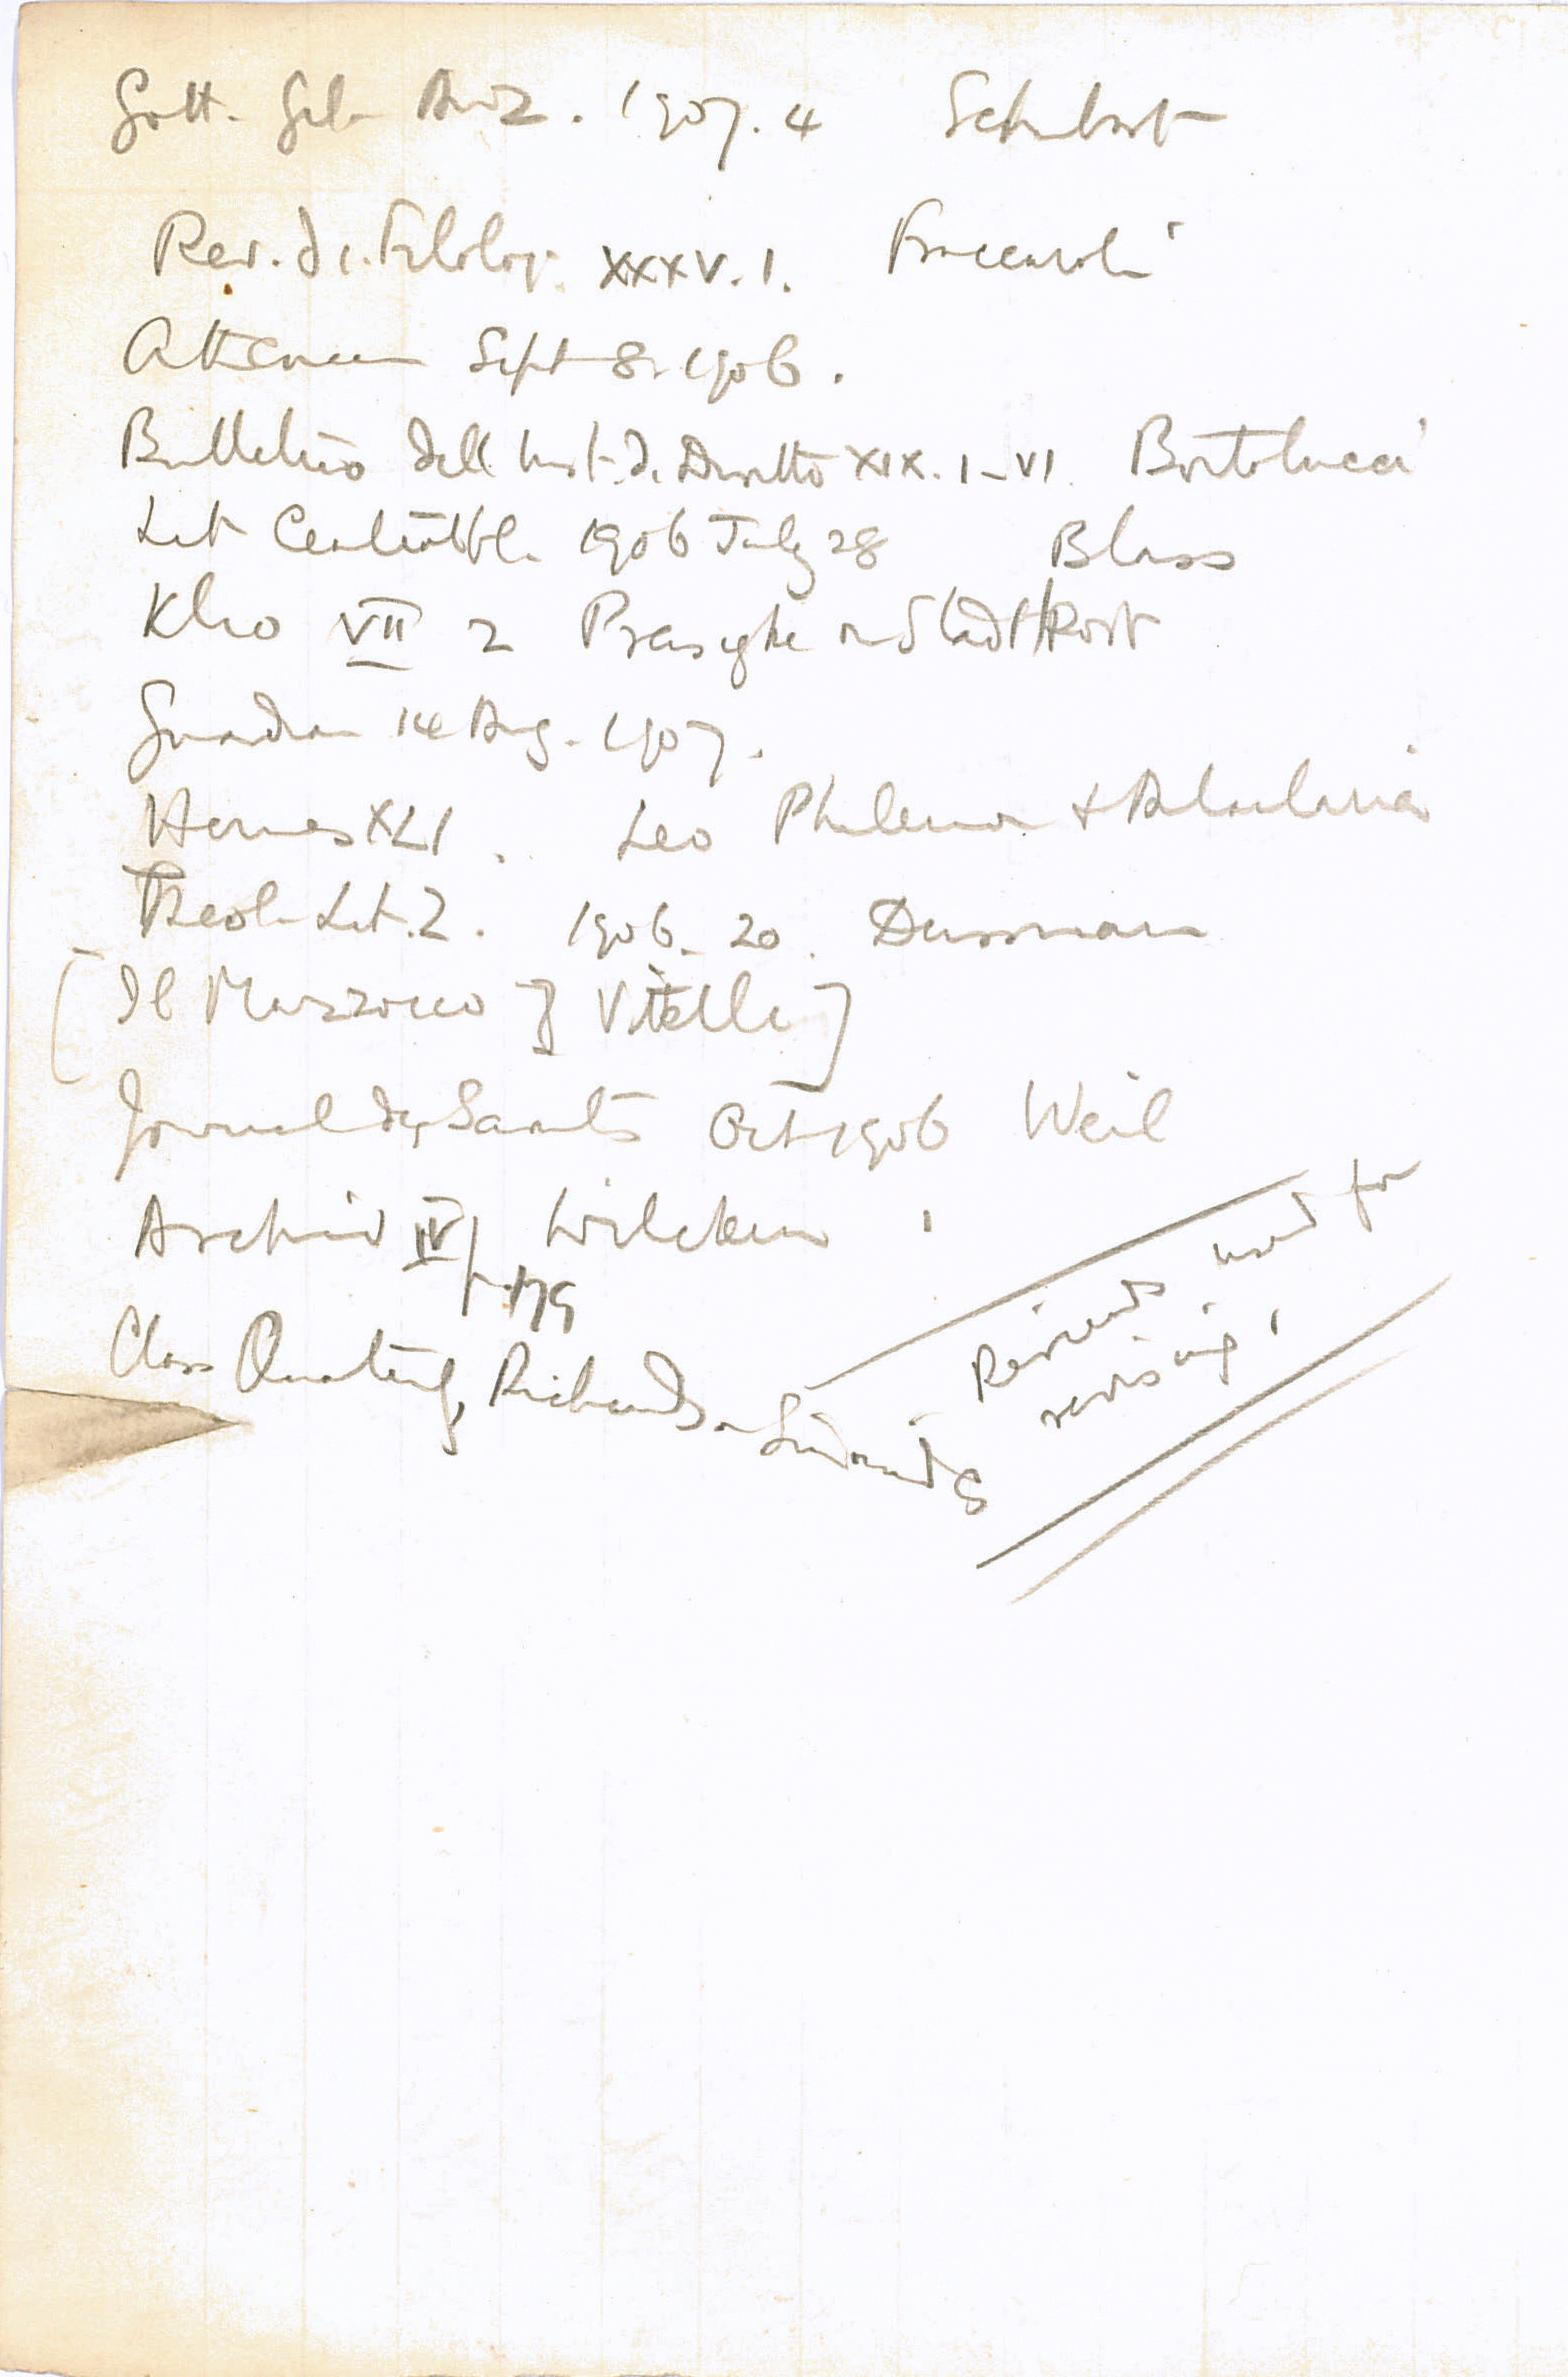 Gott. Gel. Anz. 1907. 4 Schubart
Rev. di. Filolog. XXXV. 1. Fraccaroli
Athenaeum Sept 8. 1906.
Bulletino dell Inst. d. Diritto XIX. 1-VI. Bortolucci
Lit Centralbl. 1906 July 28 Blass
Klio VII 2 Preisigke on Stadt Post
Guardian 14 Aug. 1907.
Hermes XLI. Leo Philemon + Aulularia
Theol. Lit. Z. 1906. 20. Deissmann
[Il Marzocco of Vitelli]
Journal des Savants Oct 1906 Weil
Archiv IV Wilcken
p. 179
Class Quarterly, Richards
Reviews used for
revising